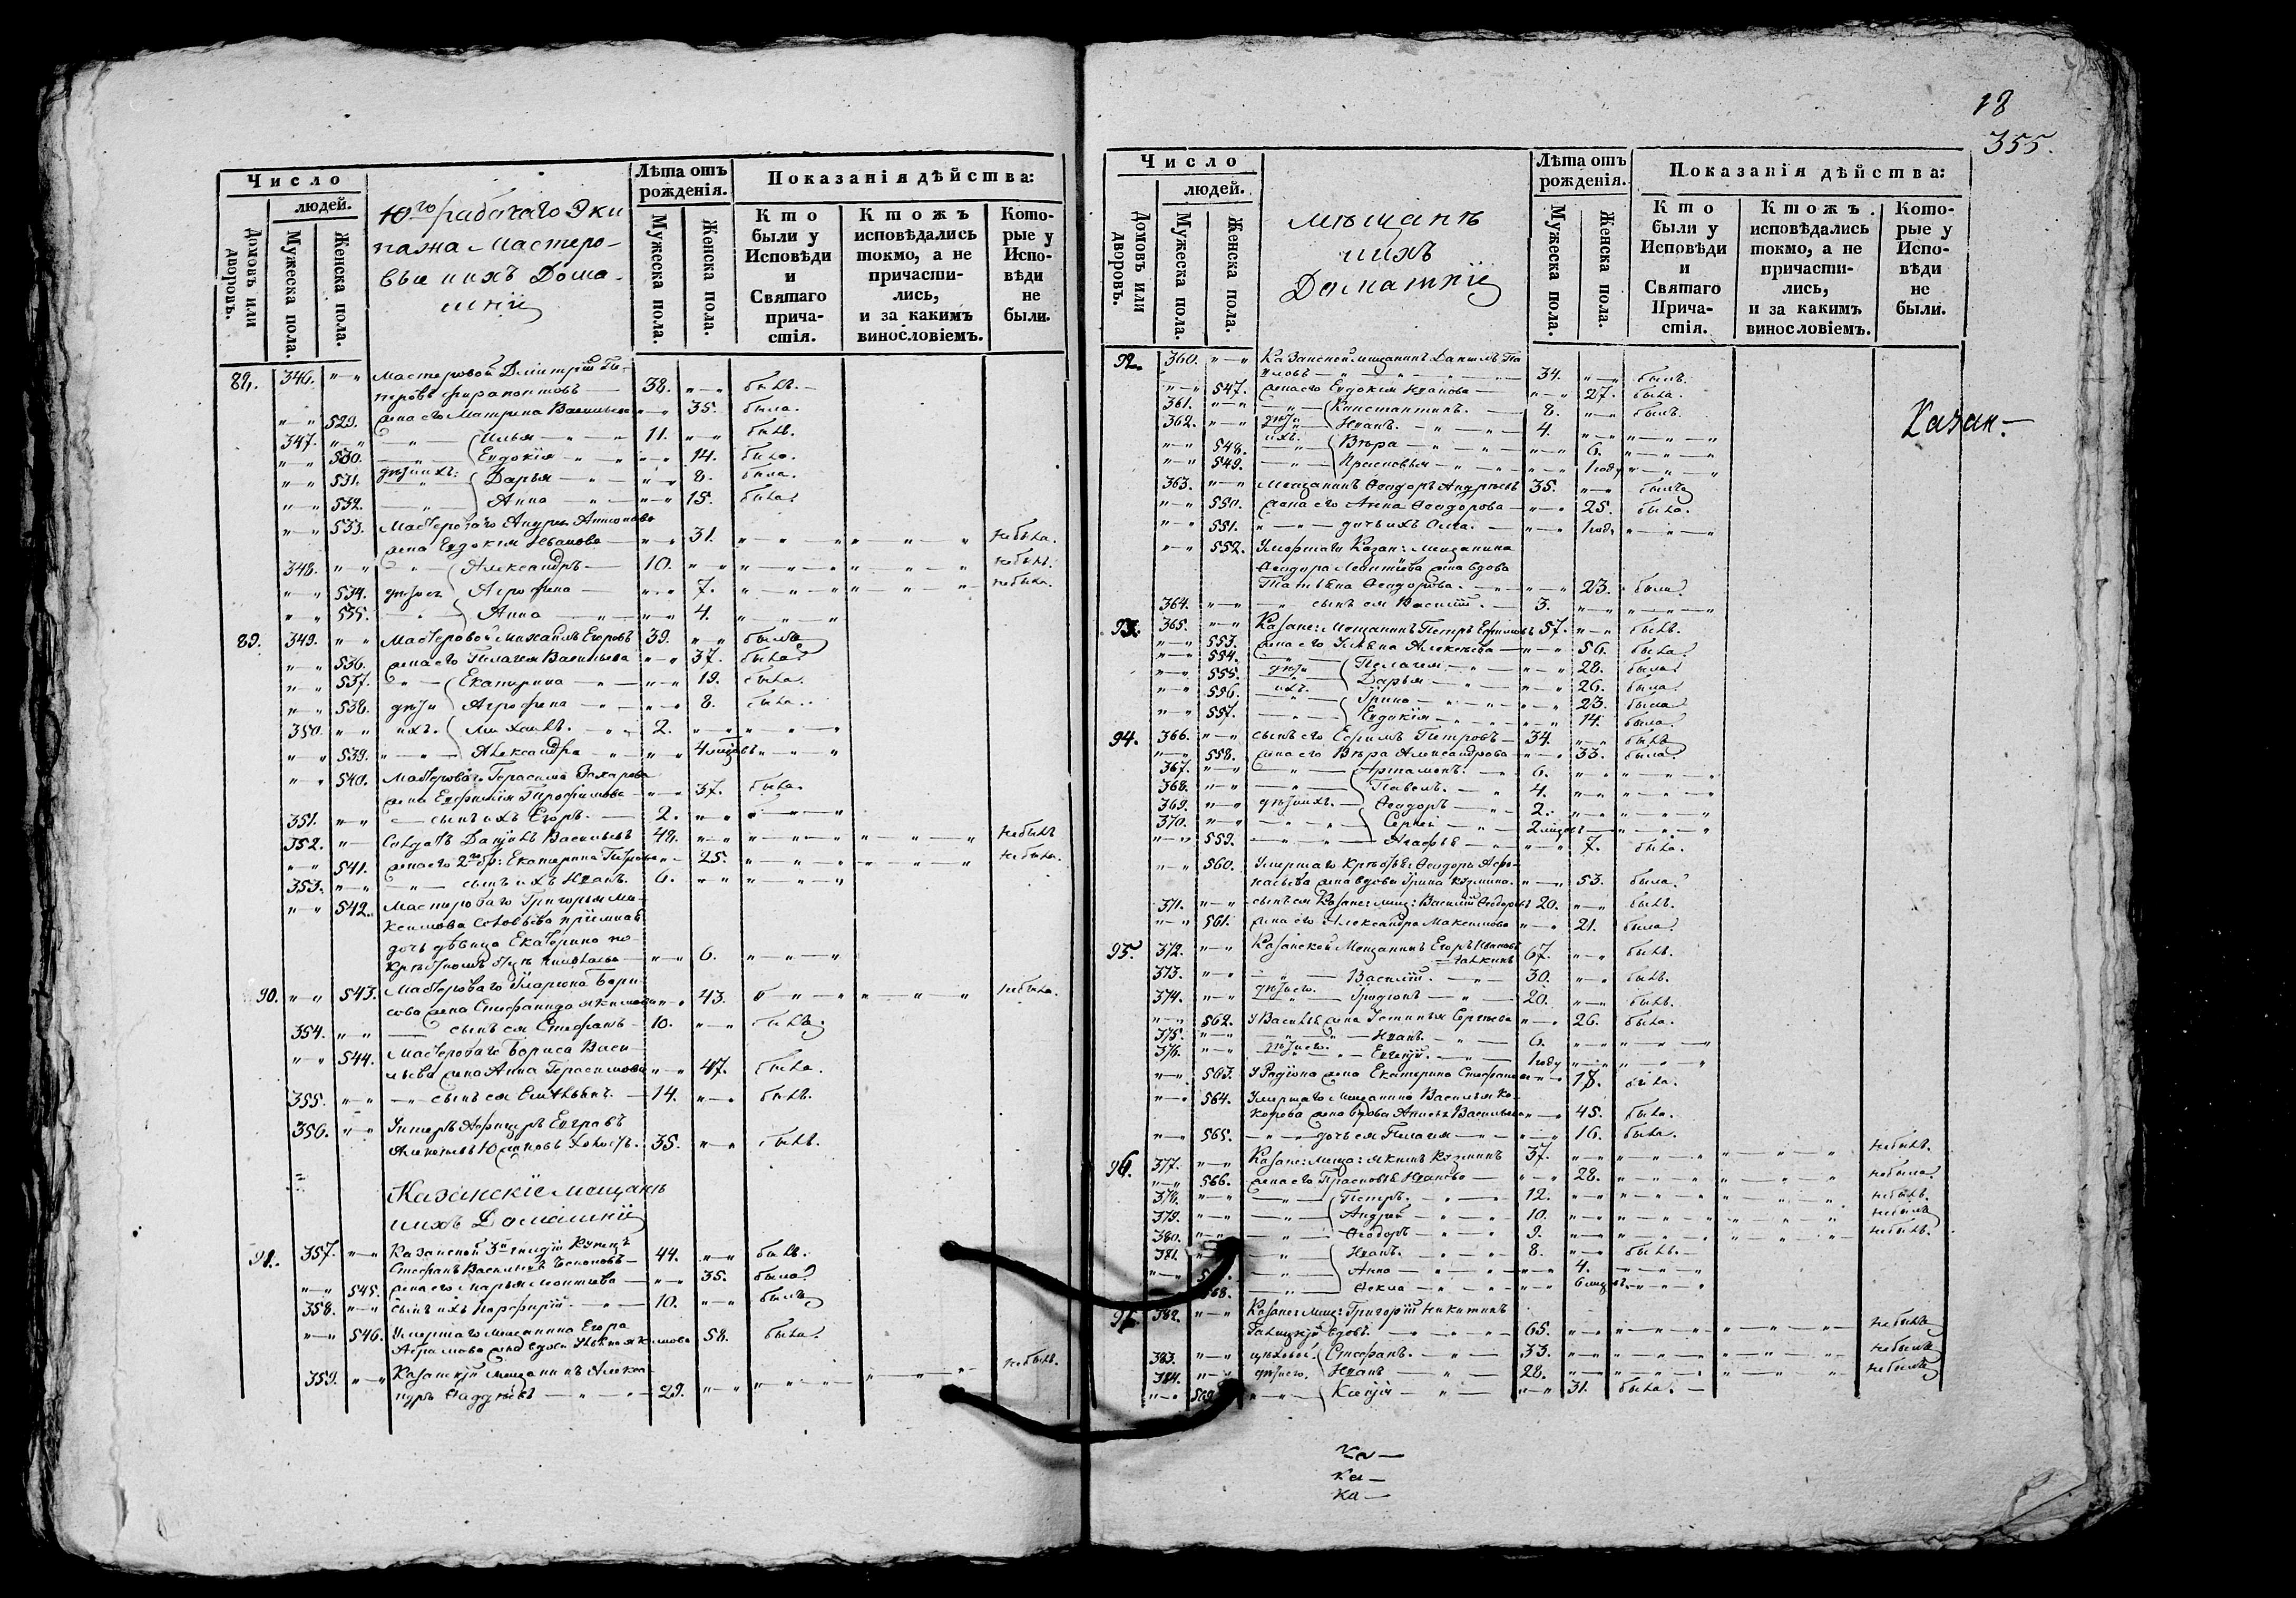 Число
людей.
Домовъ или дворовъ.
Мужеска пола.
Женска пола.
10го рабочаго Эки
пажа Мастеро-
вые ихъ Дома-
шніи
Лѣта отъ
рожденія.
Мужеска пола.
Женска пола.
Показанія дѣйства:
Кто
были у
Исповѣди
и
Святаго
прича-
стія.
Ктожъ
исповѣдались
токмо, а не
причасти-
лись,
и за какимъ
винословіемъ.
Кото-
рые у
Испо-
вѣди
не
были.
346. Мастеровой Дмитрій Пе-
тровъ 38. былъ.
529. жена его Матрина Васильева 35. была.
347. Илья 11. былъ.
530. Евдокія 14. была.
531. дѣти ихъ: Дарья 8. была.
532. Анна 15. была.
533. Мастероваго Андрея Антонова
жена Евдокія Иванова 31. небыла.
348. Александръ 10. небылъ.
534. дѣти ея Агрофена 7. небыла.
535. Анна 4.
89. 349. Мастеровой Михаилъ Егоровъ 39. былъ
536. жена его Пелагея Васильева 37. была
537. Екатерина 19. была.
538. дѣти Агрофена 8. была.
350. ихъ. Михаилъ. 2.
539. Александра 4 мѣсцовъ
540. Мастероваго Герасима Захарова
жена Евфимія Трофимова 37. была.
351. сынъ ихъ Егоръ. 2.
352. Солдатъ Данілъ Васильевъ 48. небылъ
541. жена его 2го бр: Екатерина Петрова 25. небыла.
353. сынъ ихъ Иванъ. 6.
542. Мастероваго Григорья Ма-
ксимова Соловьева пріимная
дочь дѣвица Екатерина по
6.
90. 543. Мастероваго Иларіона Бори-
сова жена Стефанида Якимова 43. небыла.
354. сынъ ея Стефанъ 10. былъ
544. Мастероваго Бориса Васи-
льева жена Анна Герасимова 47. была.
355. сынъ ея Емельянъ. 14. былъ.
356. Унтеръ Афицеръ Евграфъ
35. былъ.
Казанскіе мещанъ
ихъ Домашніи
91. 357. Казанской 3й гилдіи Купецъ
Стефанъ Васильевъ 44. былъ.
545. жена его Марья Леонтьева 35. была
358. сынъ ихъ Порфирій 10. былъ
546. Умершаго мещанина Егора
Абрамова жена вдова Ульяна Якимова 58. была.
359. Казанскій мещанинъ Алекса-
ндръ 29. небылъ.
18
355.
Число
людей.
Домовъ или дворовъ.
Мужеска пола.
Женска пола.
мѣщанъ
ихъ
Домашніи
Лѣта отъ
рожденія.
Мужеска пола.
Женска пола.
Показанія дѣйства:
Кто
были у
Исповѣди
и
Святаго
Прича-
стія.
Ктожъ
исповѣдались
токмо, а не
причасти-
лись,
и за какимъ
винословіемъ.
Кото-
рые у
Испо-
вѣди
не
были.
Казан.
92. 360. Казанской мещанинъ Данилъ Па
вловъ 34. былъ.
547. жена его Евдокія Иванова 27. была.
361. Констатинъ. 8. былъ.
362. дѣти Иванъ. 4.
548. ихъ. Вѣра 6.
549. Прасковья 1 году
363. Мещанинъ Феодоръ Андреевъ 35. былъ
550. жена его Анна Феодорова 25. была.
551. дочь ихъ Олга. 1 году
552. Умершаго Казан: мещанина
Феодора Леонтіева жена вдова
Татьяна Феодорова. 23. была
364. сынъ ея Василій. 3.
93. 365. Казанс: Мещанинъ Петръ Ефимовъ 57. былъ.
553. жена его Ульяна Алексеева 56. была
554. Пелагея 28. была
555. дѣти Дарья 26. была
556. ихъ. Ірина 23. была
557. Евдокія 14. была
94. 366. сынъ его Ефимъ Петровъ 34. былъ
558. жена его Вѣра Александрова 33. была
367. Артамонъ. 6.
368. Павелъ. 4.
369. дѣти ихъ. Феодоръ 2.
370. Сергій 2 мѣсцовъ
559. Агафья 7. была.
560. Умершаго Феодора Афо-
насьева жена вдова Ірина Кузмина. 53. была.
371. сынъ ея Казанс: мещ: Василій Феодоровъ 20. былъ.
561. жена его Александра Максимова 21. была
95. 372. Казанской Мещанинъ Егоръ Ивановъ
67. былъ.
373. Василій. 30. былъ.
374. дѣти его. Іродіонъ 20. былъ.
562. У Василья жена Устинья Сергеева 26. была.
375. Иванъ. 6.
376. дѣти его. Евгеній. 1 году
563. У Родіона жена Екатерина Стефанова 18. была.
564. Умершаго Мещанина Василья Ко-
корева жена вдова Васильева 45. была.
565. дочь ея Пелагея 16. была.
96. 377. Казанс: Меща: Якимъ Кузминъ 37. небылъ.
566. жена его Прасковья Иванова 28. небыла
378. Петръ. 12. небылъ.
379. Андрей 10. небылъ
380. Феодоръ 9. небылъ.
381. Иванъ. 8. былъ.
Анна 4.
568. Фекла 6 мѣсц
97. 382. Казанс: мещ: Григорій Никитинъ
вдовъ. 65. небылъ
383. Стефанъ. 33. небылъ
384. дѣти его. Иванъ 28. небылъ
569. Ксенія 31. была.
ка
ка
ка